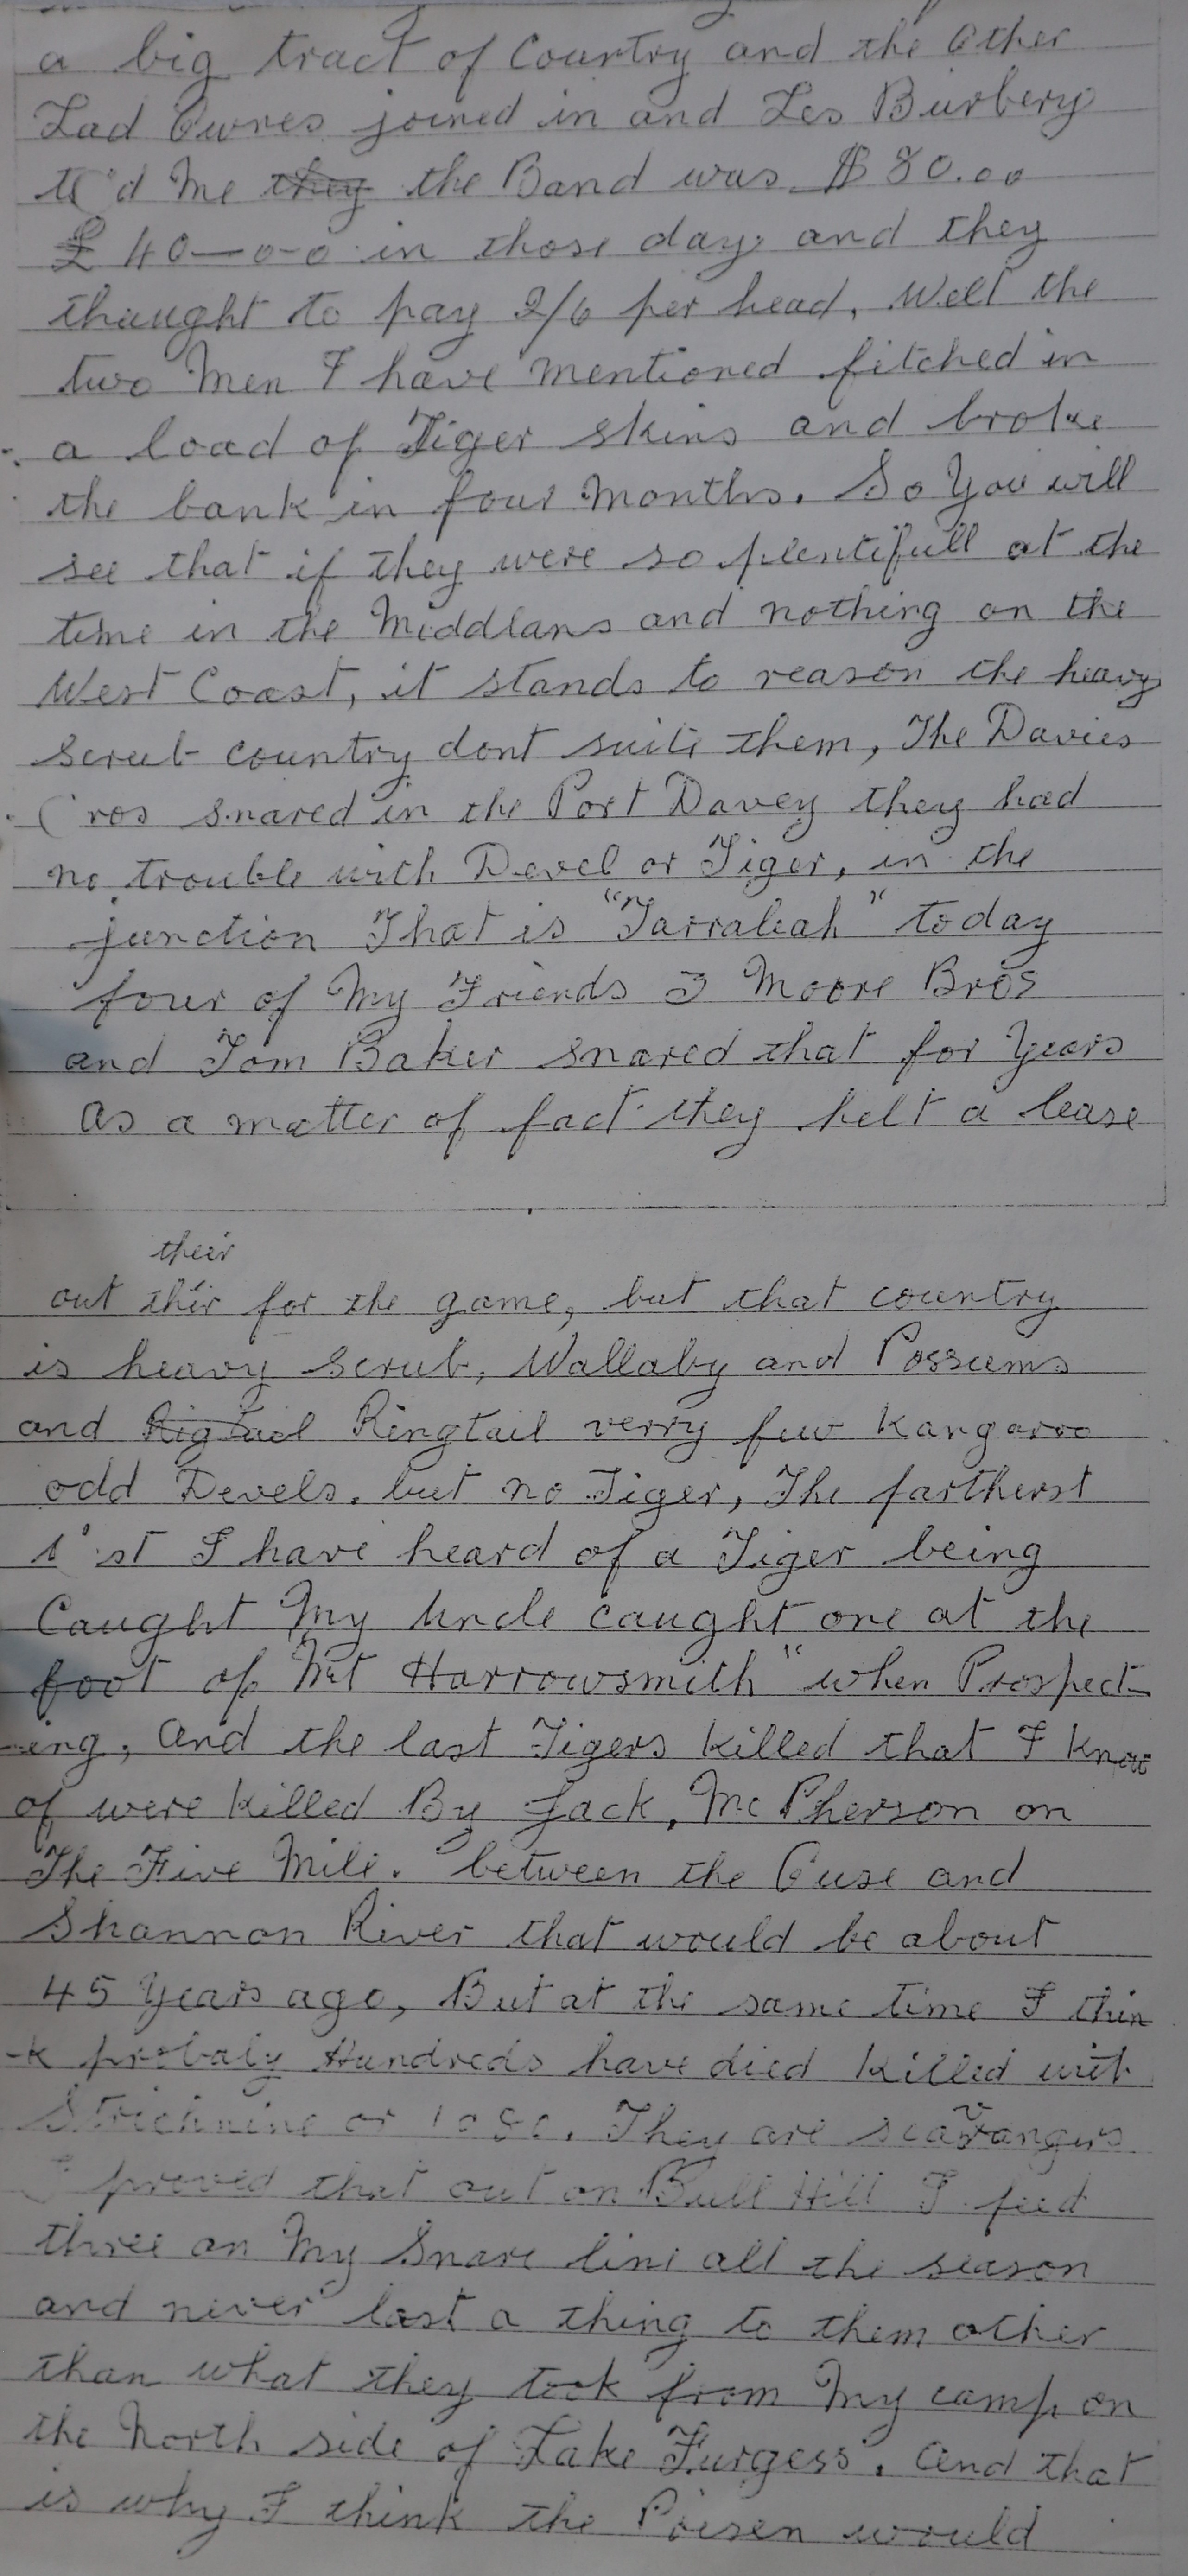 a big tract of Country and the Other
Lad Owres joined in and Les Burbery
to d Me they the Band was $ 80.00
£ 40-0-0 in those day and they
thaught to pay 2/6 per head, Well the
two Men I have mentioned fitched in
a load of Tiger skins and broke
the bank in four Months. So You will
see that if they were so plentifull at the
time in the Middlans and nothing on the
West Coast, it stands to reason the heavy
scrub country dont suite them, The Davies
ros snared in the Port Davey they had
no trouble with Devel or Tiger, in the
junction That is "Tarraleah" today
four of My Friends 3 Moore Bros
and Tom Baker snared that for Years
as a matter of fact they helt a lease
their
out thir for the game, but that country
is heavy scrub, Wallaby and Possums
and Rigtail Ringtail verry few Kangaroo
odd Devels. but no Tiger, The fartherst
st I have heard of a Tiger being
Caught My Uncle caught one at the
foot of Mt Harrowsmith" when Prospect-
-ing, and the last Tigers killed that I know
of were killed By Jack, Mc Pherson on
The Five Mile. between the Ouse and
Shannon River that would be about
45 Years ago, But at the same time I thin
-k probaly Hundreds have died killed with
Strichnine or 1080. They are scavangers
I proved that out on Bull Hill I feed
three on My Snare line all the season
and never last a thing to them other
than what they took from My camp on
the North side of Lake Furgess. and that
is why I think the Poisen would